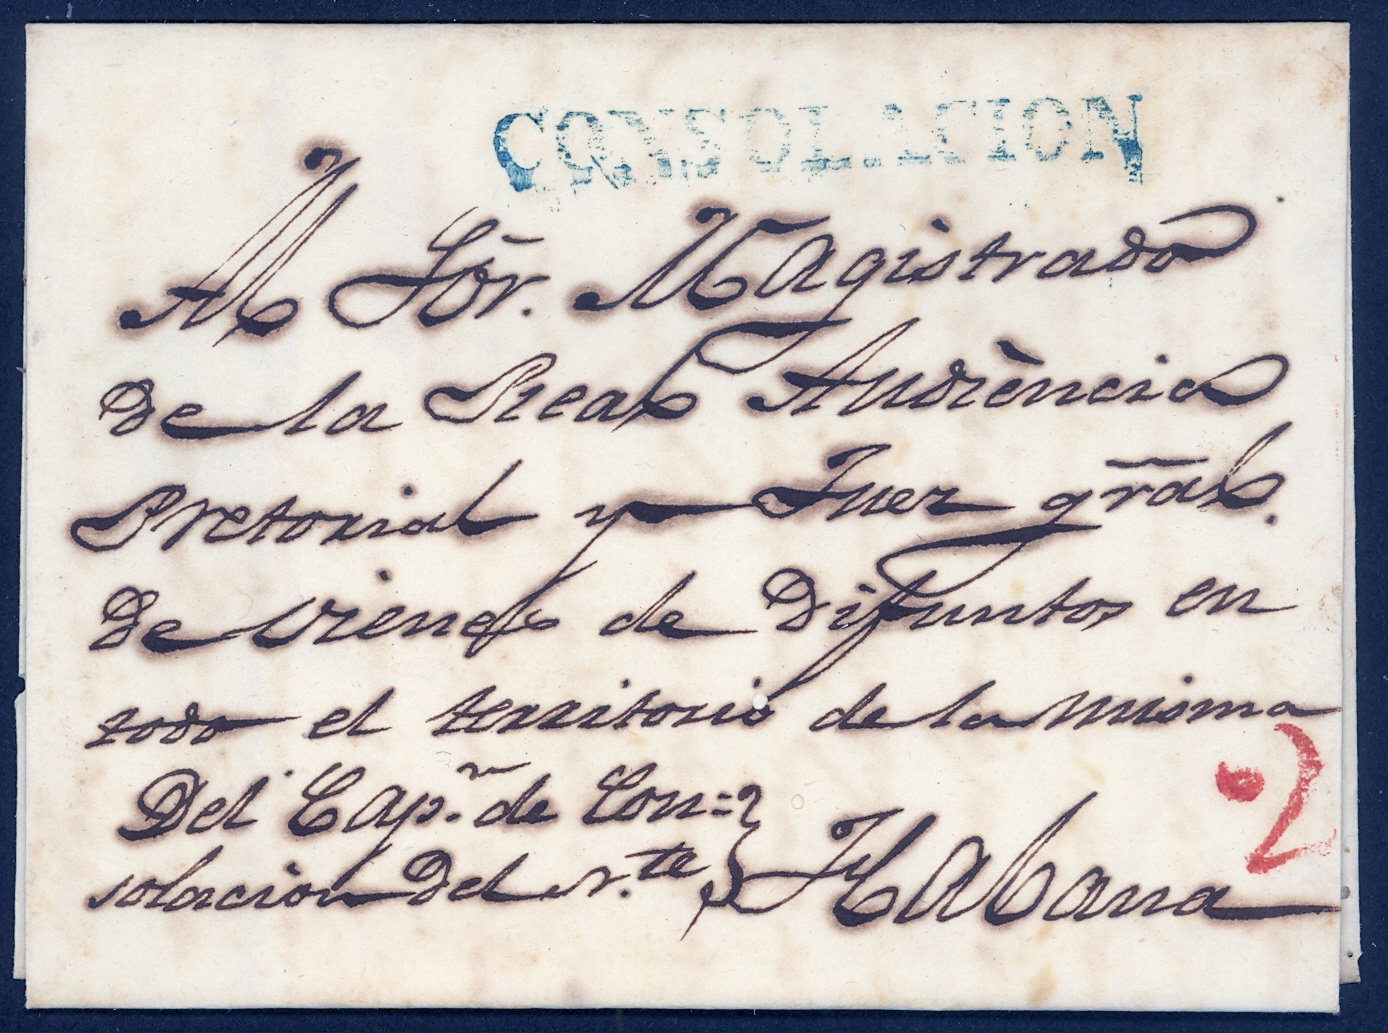 CONSOLACION
Al Sōr. Magistrado
de la Real Audiència
Pretorial y Juez grāl.
de vienes de Difuntos en
todo el territorio de la misma
Del Capⁿ. de Con=
solacion del N.te } Habana
2